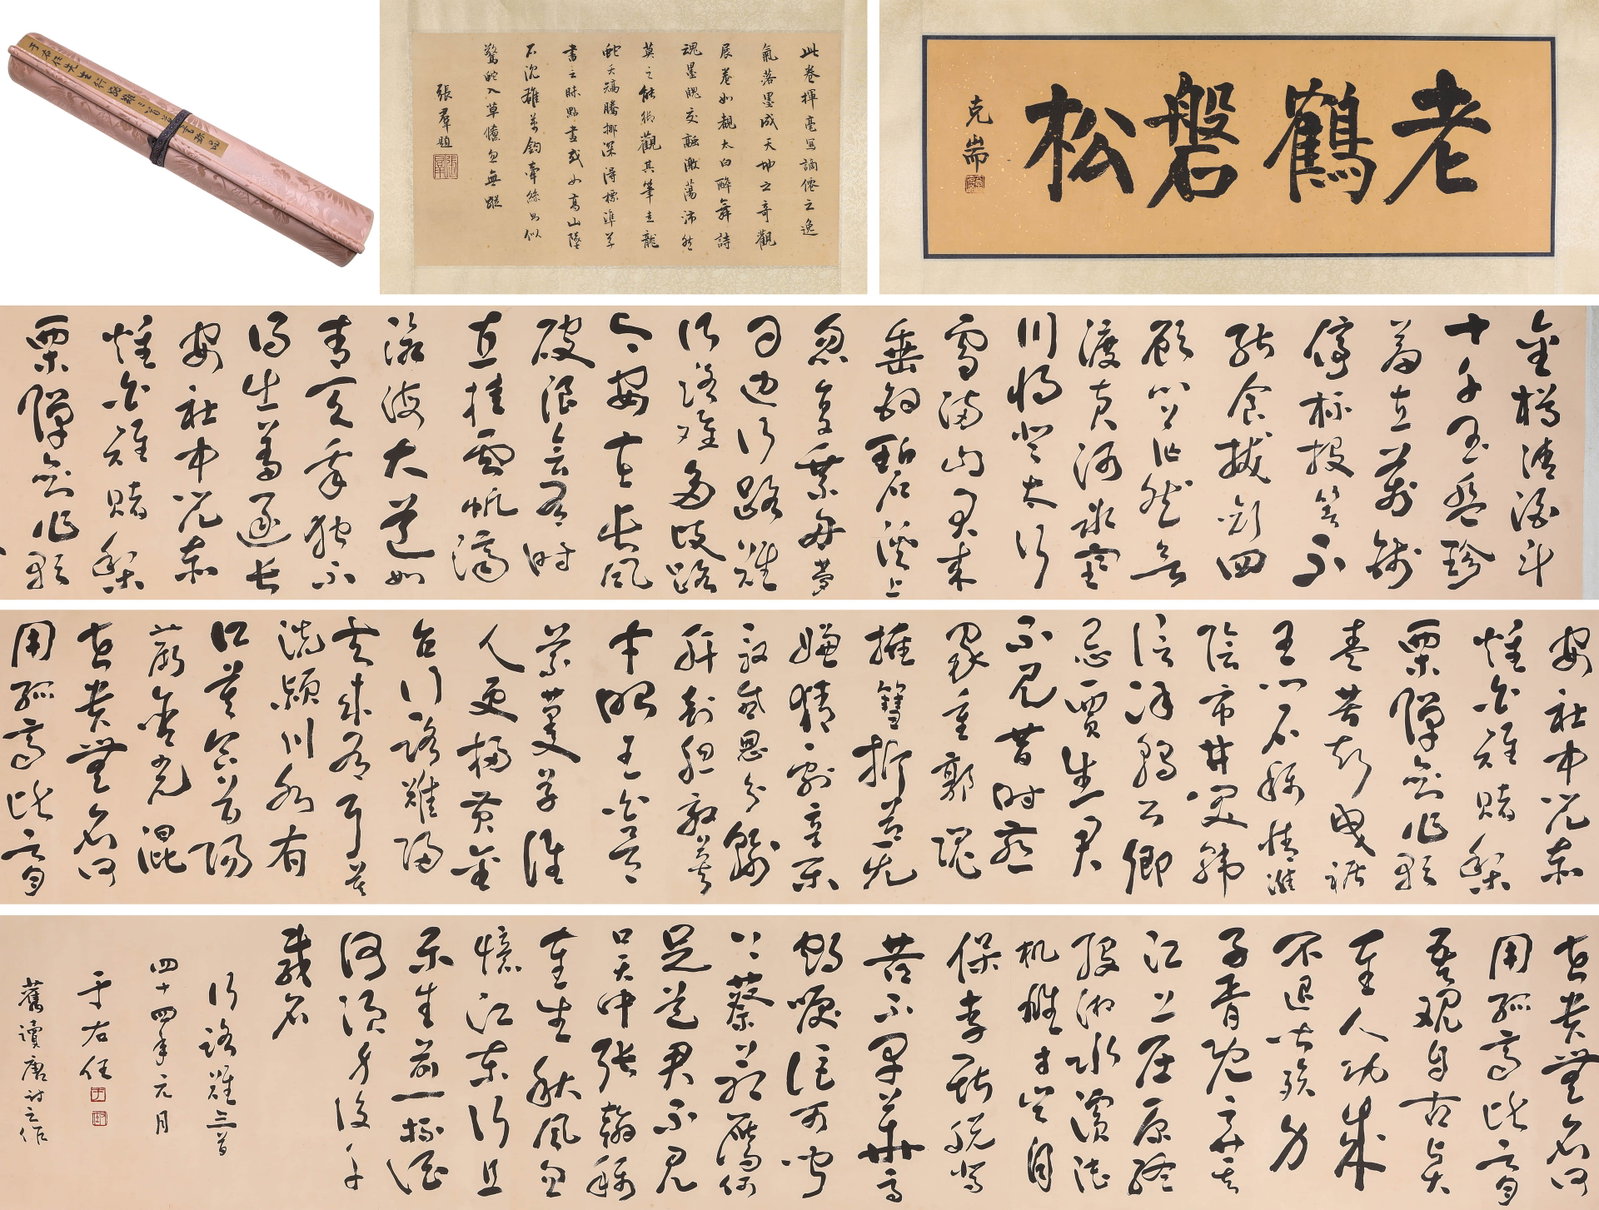 此卷揮毫寫謫僊之逸
氣落墨成天地之奇觀
展卷如觀太白醉舞詩
魂墨魄交融激蕩沛然
莫之能禦觀其筆走龍
蛇夭矯騰挪深得標準草
書之昧點畫或如高山墜
石沉雄萬鈞牽絲如似
驚蛇入草倏忽無蹤
張羣題
老鶴磐松
克耑
金樽清酒斗
十千玉盤珍
羞直萬錢
停杯投箸不
能食拔劍四
顧心茫然欲
渡黃河冰塞
川將登太行
雪滿山閒來
垂釣碧溪上
忽復乘舟夢
日邊行路難
行路難多歧路
今安在長風
破浪會有時
直挂雲帆濟
滄海大道如
青天我獨不
得出羞逐長
安社中兒赤
雞白雉賭梨
栗彈劍作歌
安社中兒赤
雞白雉賭梨
栗彈劍作歌
奏苦聲曳裾
王門不稱情淮
陰市井笑韓
信漢朝公卿
忌賈生君
不見昔時燕
家重郭隗
擁篲折節無
嫌猜劇辛樂
毅感恩分輸
肝剖膽效英
才昭王白骨
縈蔓草誰
人更掃黃金
台行路難歸
去來有耳莫
洗潁川水有
口莫食首陽
蕨含光混
世貴無名何
用孤高比雲月
世貴無名何
用孤高比雲月
吾觀自古賢
達人功成
不退皆殞身
子胥既棄吳
江上屈原終
投湘水濱陸
機雄才豈自
保李斯稅駕
苦不早華亭
鶴唳詎可聞
上蔡蒼鷹何
足道君不見
吳中張翰稱
達生秋風忽
憶江東行且
樂生前一杯酒
何須身後千
載名
行路難三首
四十四年元月
于右任
舊讀唐詩之作